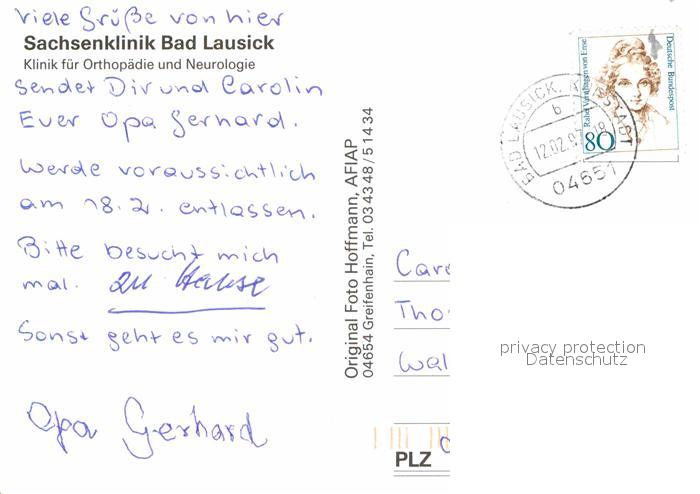 Viele Grüße von hier
Sachsenklinik Bad Lausick
Klinik für Orthopädie und Neurologie
sendet Dir und Carolin
Euer Opa Gerhard.
Werde voraussichtlich
am 18.2. entlassen.
Bitte besucht mich
mal. zu Hause
Sonst geht es mir gut.
Opa Gerhard
Original Foto Hoffmann, AFIAP
04654 Greifenhain, Tel. 03 43 48 / 5 14 34
Deutsche Bundespost
Rahel Varnhagen von Ense
80
BAD LAUSICK, KURSTADT
b
12.02.97
18
04651
Caro
Tho
Wal
PLZ
privacy protection
Datenschutz